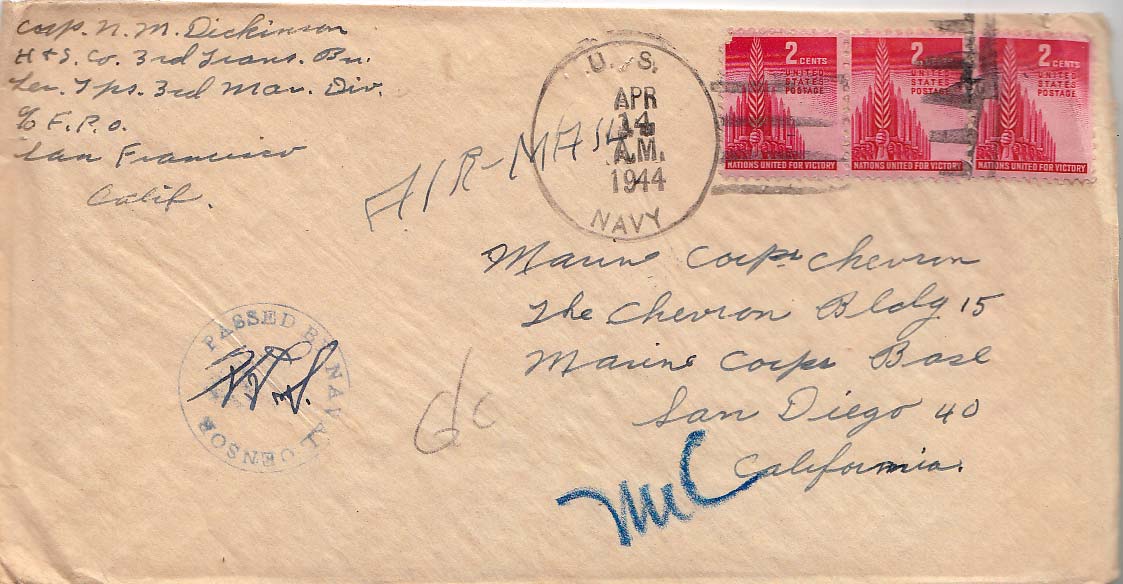 Corp. N. M. Dickinson
H + S. Co. 3rd Trans. Bn.
Ser. Tps. 3rd Mar. Div.
c/o F. P. O.
San Francisco
Calif.
AIR-MAIL
U. S.
APR
14
A.M.
1944
NAVY
2 CENTS
UNITED
STATES
POSTAGE
NATIONS UNITED FOR VICTORY
2 CENTS
UNITED
STATES
POSTAGE
NATIONS UNITED FOR VICTORY
2 CENTS
UNITED
STATES
POSTAGE
NATIONS UNITED FOR VICTORY
Marine Corps Chevron
The Chevron Bldg 15
Marine Corps Base
San Diego 40
California.
PASSED BY NAVAL CENSOR
6c
McC